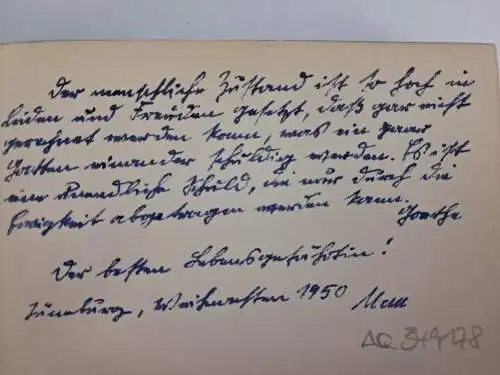 Der menschliche Zustand ist so hoch in
Leiden und Freuden gesetzt, daß gar nicht
gerechnet werden kann, was ein Paar
Gatten einander schuldig werden. Es ist
eine unendliche Schuld, die nur durch die
Ewigkeit abgetragen werden kann.
Goethe
Der besten Lebensgefährtin!
Lüneburg, Weihnachten 1950
AQ 349178